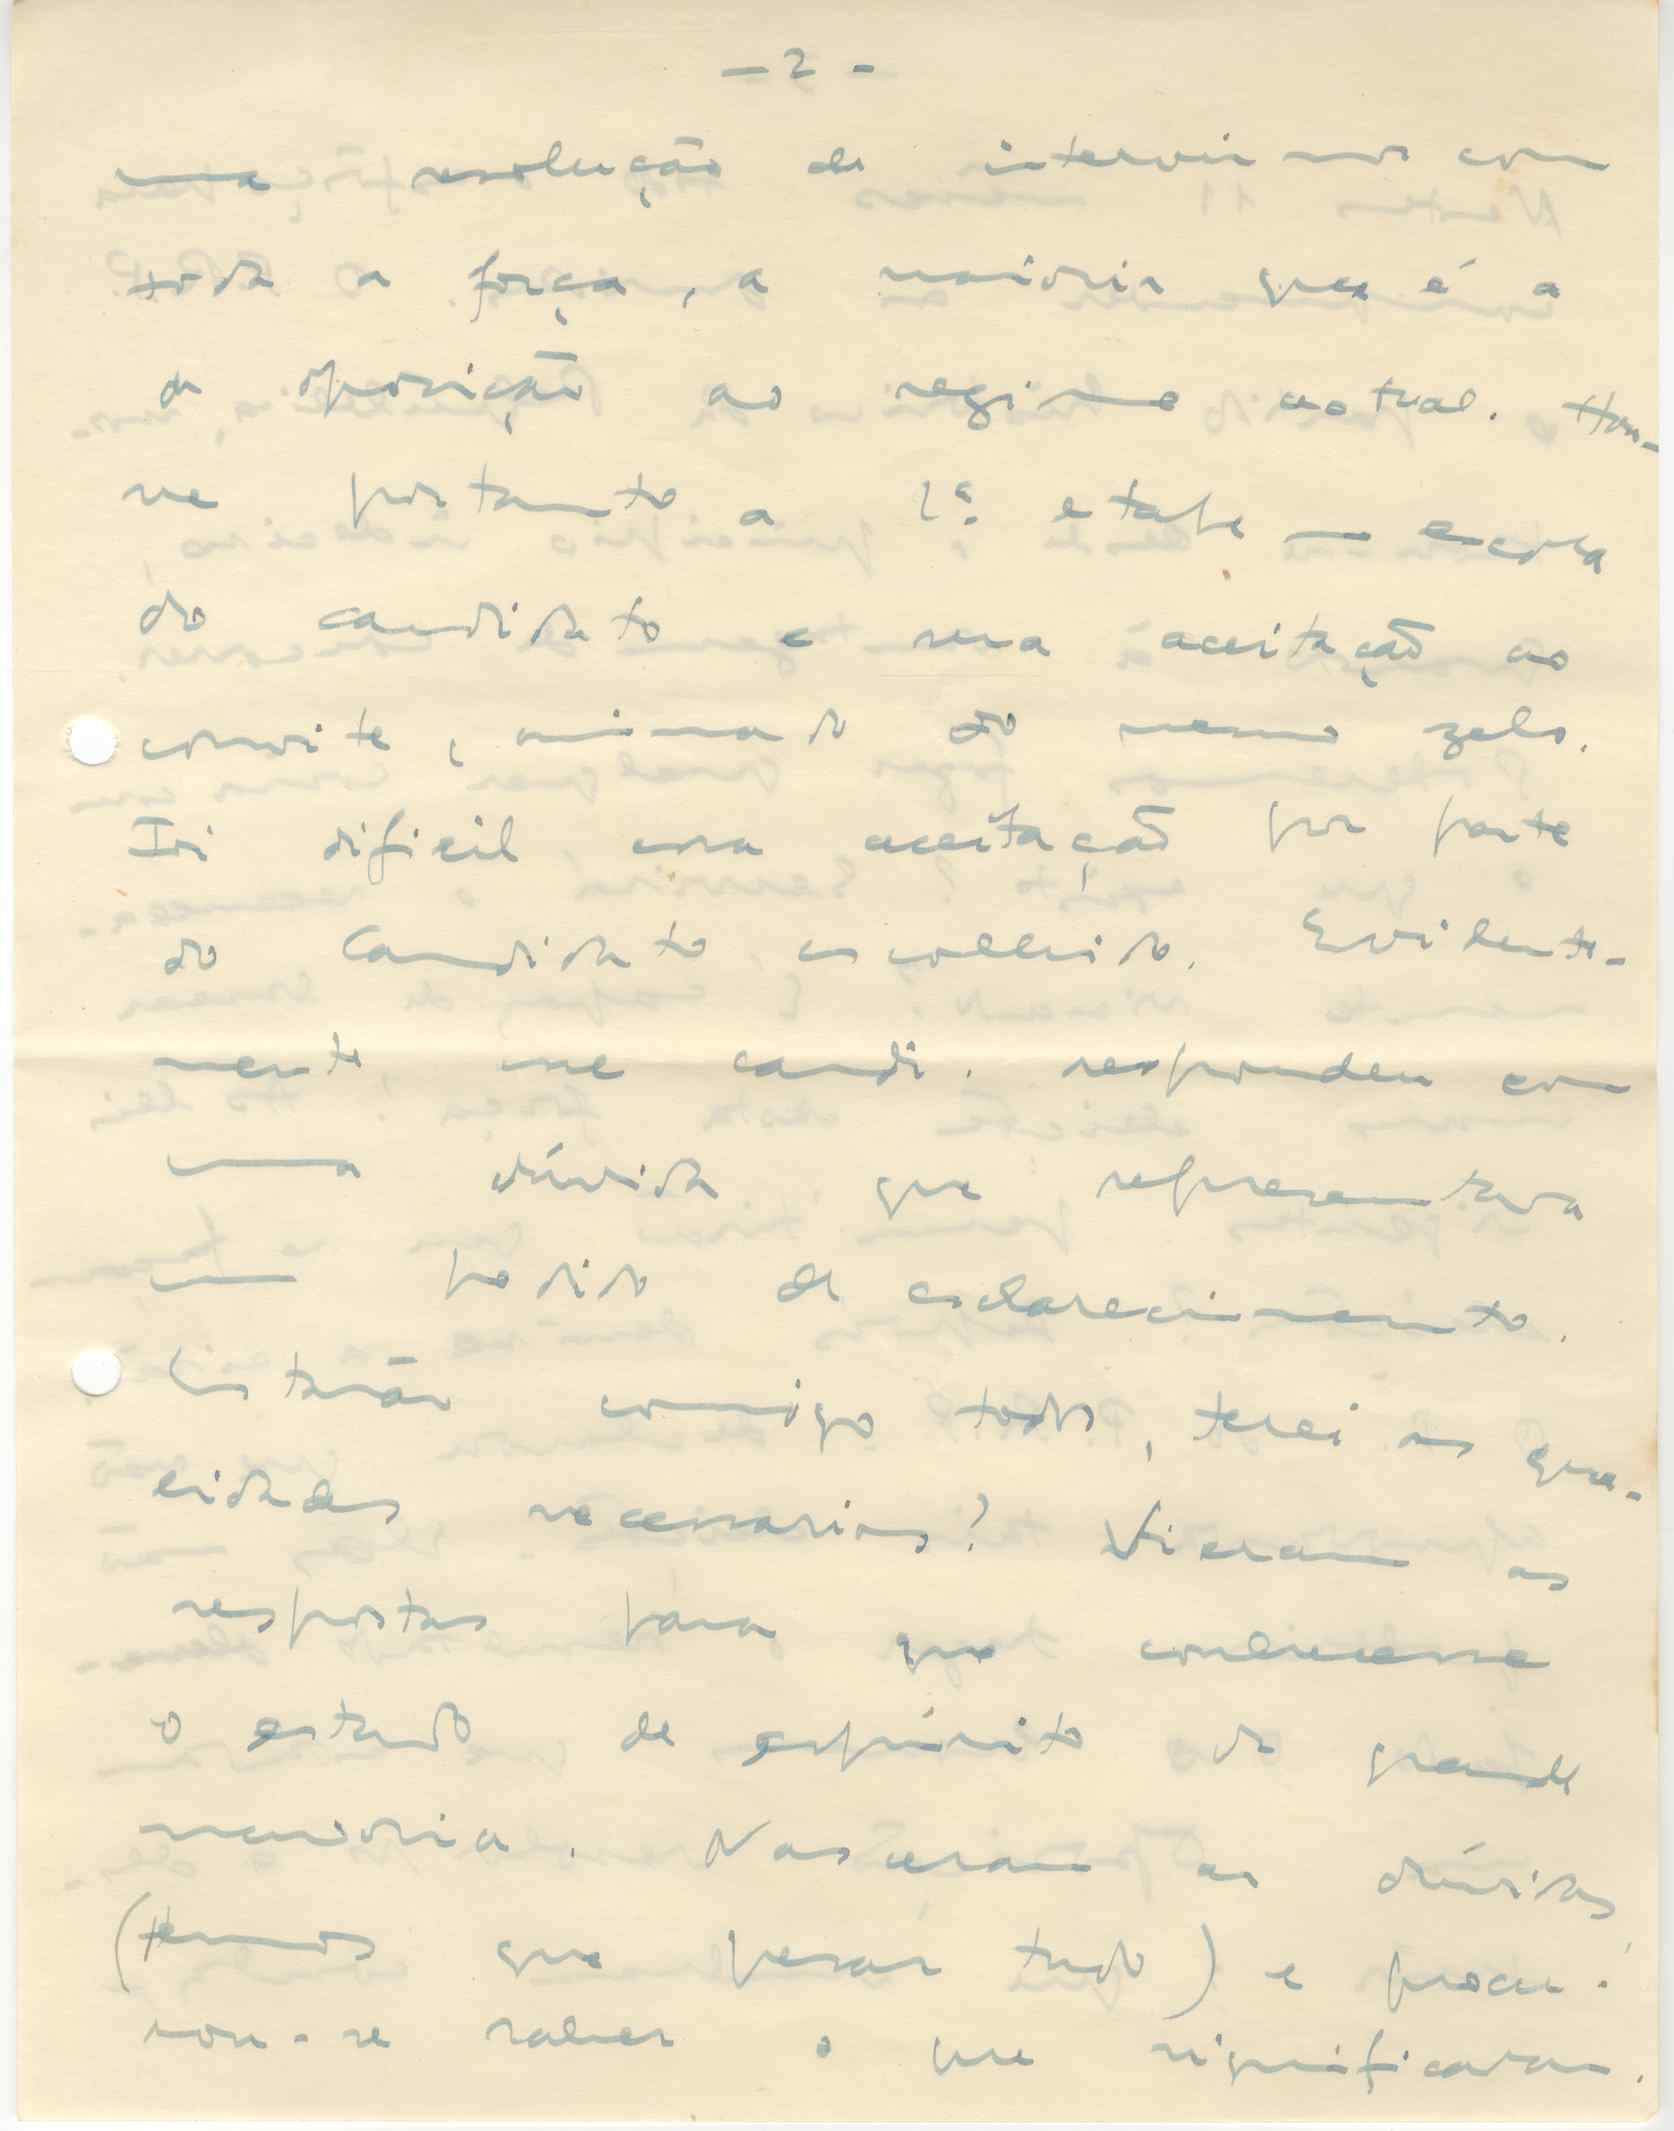 — 2 -
na resolução de intervirmos com
toda a força, a maioria que é a
da oposição ao regime actual. Hou-
ve portanto a 1ª etape — escolha
do candidato e sua aceitação ao
convite, animado do mesmo zelo.
Foi dificil essa aceitação por parte
do Candidato escolhido. Evidente-
mente esse candi. respondeu com
uma dúvida que representava
um pedido de esclarecimento.
Estarão comigo todos, terei as qua-
lidades necessarias? Vieram as
respostas para que conhecesse
o estado de espirito da grande
maioria. Nasceram as dúvidas,
(temos que pesar tudo) e procu-
rou-se saber o que significavam.